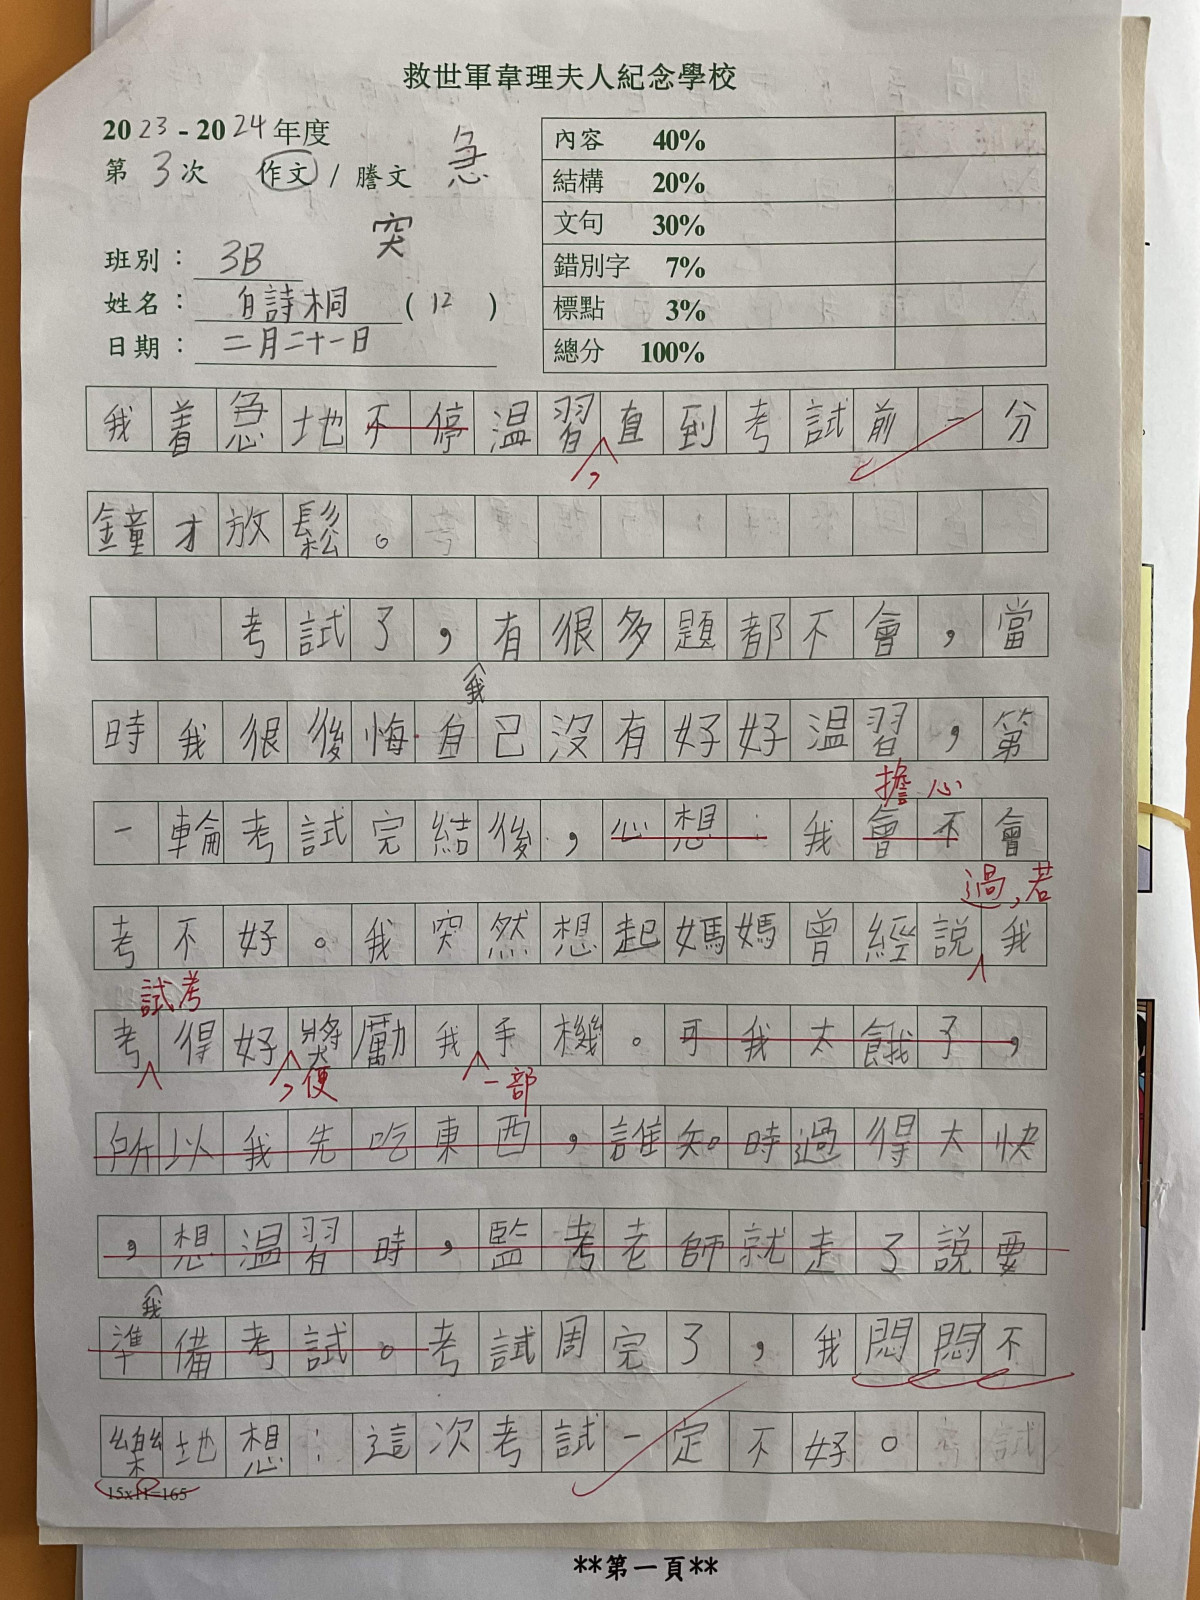 救世軍韋理夫人紀念學校
2023-2024年度
第3次 作文 / 謄文
急
突
班別：3B
姓名：白詩桐 (12)
日期：二月二十一日
內容 40%
結構 20%
文句 30%
錯別字 7%
標點 3%
總分 100%
我着急地不停温習，直到考試前一分
鐘才放鬆。
考試了，有很多題都不會，當
我
時我很後悔自己没有好好温習，第
擔心
一輪考試完結後，心想：我會不會
過，若
考不好。我突然想起媽媽曾經説我
試考
考得好獎勵我手機。可我太餓了，
，便 一部
所以我先吃東西，誰知時過得太快
，想温習時，監考老師就走了説要
我
準備考試。考試周完了，我悶悶不
樂地想：這次考試一定不好。
15x11=165
**第一頁**